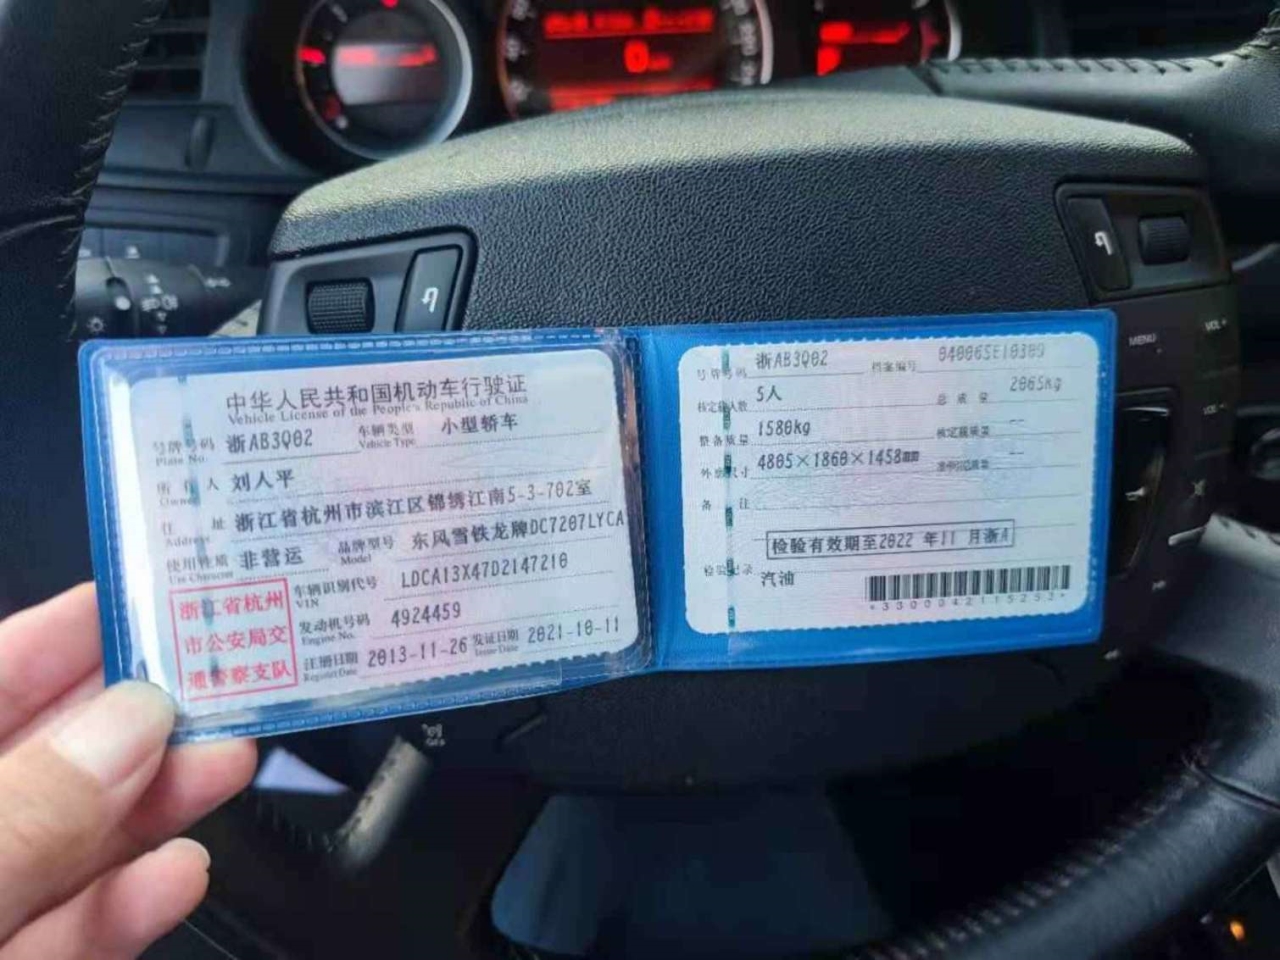 中华人民共和国机动车行驶证
Vehicle License of the People's Republic of China
号牌号码 浙AB3Q02 车辆类型 小型轿车
Plate No. Vehicle Type
所有人 刘人平
Owner
住址 浙江省杭州市滨江区锦绣江南5-3-702室
Address
使用性质 非营运 品牌型号 东风雪铁龙牌DC7207LYCA
Use Character Model
浙江省杭州
市公安局交
通警察支队
车辆识别代号 LDCA13X47D2147210
VIN
发动机号码 4924459
Engine No.
注册日期 2013-11-26 发证日期 2021-10-11
Register Date Issue Date
号牌号码 浙AB3Q02 档案编号
核定载人数 5人 总质量 2065kg
整备质量 1580kg 核定载质量 --
外廓尺寸 4805×1860×1458mm --
备注
检验有效期至2022年11月浙A
检验记录 汽油
*3300042115253*
MENU
VOL +
VOL -
0